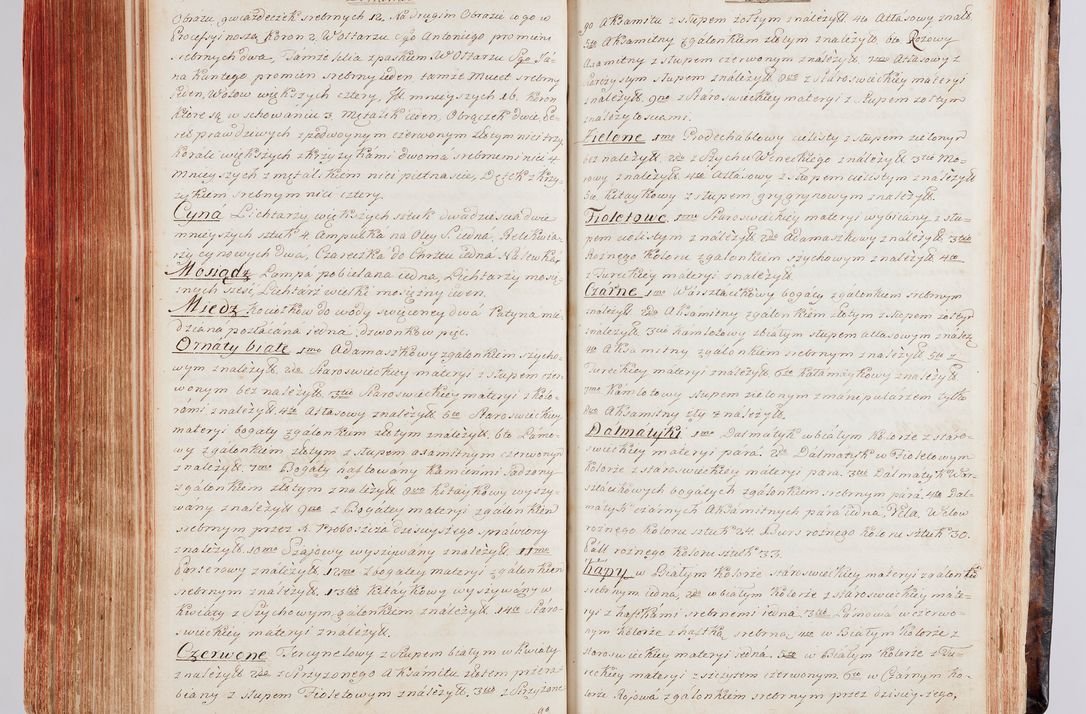 Obrazu gwiazdeczek srebrnych 12. Na drugim Obrazie co go w
Procesyi noszą Koron 2. W Ołtarzu Sgo Antoniego promieni
srebrnych dwa, Tamże Lilia z paskiem. W Ołtarzu Sgo Ja-
na Kantego promien srebrny ieden, tamże Mucet srebrny
ieden, Wotow większych cztery, mnieyszych 16. Koron
ktore są w schowaniu 3. Metalik ieden, Obrączek dwie, Pe-
reł prawdziwych z podwoynym czerwonym złotym nici trzy,
Korali większych z krzyżykámi dwomá srebrnemi nici 4
Mnieyszych z metalikiem nici pietnascie, Pętek z krzy-
żykiem srebrnym nici cztery.
Cyna Lichtarzy większych sztuk dwadziescia dwie
mnieyszych sztuk 4. Ampułka na Oley S. iedna, Relikwia-
rzy cynowych dwa, Czareczka do Chrztu iedna, Nalewka
Mosiądz Lampa pobielana iedna, Lichtarzy mosię-
znych szesc, Lichtarz wielki mosiężny ieden.
Miedz Kociołkow do wody święconey dwá Patyna mie-
dziana pozłácána iedna, dzwonkow pięc.
Ornáty białe 1mo Adamaszkowy z gálonkiem szycho-
wym z náleżyt. 2do Staroswieckiey materyi z słupem czer-
wonym bez należyt. 3tio Staroswieckiey materyi z kolo-
rámi z należyt. 4to Atłasowy z należyt. 5to Staroswieckiey
materyi bogaty z galonkiem złotym z należyt. 6to Lámo-
wy z gálonkiem złotym z słupem axamitnym czerwonym
z należyt. 7mo Bogaty háftowany kámieniámi sadzony
z gálonkiem złotym z należyt. 8vo kitáykowy wyszy-
wány z należyt. 9no z Bogatey materyi z galonkiem
srebrnym przez X. Proboszcza dzisieyszego sprawiony
z należyt. 10mo Szajowy wyszywany z należyt. 11mo
Parterowy z należyt. 12mo z bogatey materyi z gálonkiem
srebrnym z należyt. 13tio kitáykowy wyszywany w
kwiáty z Szychowym galonkiem z należyt. 14to Stáro-
swieckiey materyi z należyt.
Czerwone Tercynelowy z słupem białym w kwiaty
z należyt. 2do z Strzyżonego Aksámitu złotem przera-
biany z słupem Fioletowym z należyt. 3tio z Strzyżone
go
go Aksamitu z słupem żołtym z należyt. 4to Atłasowy z nale.
5to Aksamitny z gálonkiem złotym z należyt. 6to Rożowy
Axamitny z słupem czerwonym z należyt. 7mo Atłasowy z
Parzystym słupem z należyt. 8vo z Staroswieckiey materyi
z należyt. 9no z Stároswieckiey materyi z słupem żołtym
z należytosciami.
Zielone 1mo Prodechablowy cielisty z słupem zielonym
bez należyt. 2do z Szychu Weneckiego z należyt. 3tio Mo-
rowy z należyt. 4to Atłasowy z słupem cielistym z należyt.
5to kitaykowy z słupem grygrynowym z należyt.
Fioletowe 1mo Stároswieckiey materyi wybiiany z słu-
pem cielistym z należyt. 2do Adamaszkowy z należyt. 3tio
Rożnego kolorze z gálonkiem szychowym z należyt. 4to
z Tureckiey materyi z należyt.
Czárne 1mo Wársztácikowy bogáty z gálonkiem srebrnym
należyt. 2do Aksámitny z galonkiem złotym z słupem żołtym
z należyt. 3tio Kámlotowy z białym słupem atłasowym z należ.
4to Aksamitny z gálonkiem srebrnym z należyt. 5to z
Tureckiey materyi z należyt. 6to Kátamáykowy z należyt.
7mo Kámlotowy słupem zielonym z manipularzem tylko
8vo Aksamitny zły z należyt.
Dalmátyki 1mo Dalmátyk w białym kolorze z staro-
swieckiey materyi para. 2do Dalmátyk w Fioletowym
kolorze z staroswieckiey materyi para. 3tio Dálmatyk War-
sztácikowych bogátych z gálonkiem srebrnym pára 4to Dal-
matyk czárnych Aksámitnych pára iedna, Vela, Welow
rożnego Koloru sztuk 24. Burs rożnego koloru sztuk 30.
Páll rożnego Koloru sztuk 33.
Kápy w Białym Kolorze stároswieckiey materyi z galonkie
srebrnym iedna, 2do w białym Kolorze z staroswieckiey mate-
ryi z haftkámi srebrnemi iedna. 3tio Lámowa w czerwo-
nym Kolorze z haftką srebrną 4to w Białym Kolorze z
staroswieckiey materyi iedná. 5to w Białym Kolorze z Tu-
reckiey materyi z szczytem czerwonym. 6to w Czárnym Ko-
lorze Rysowa z gálonkiem srebrnym przez dzisieyszego,